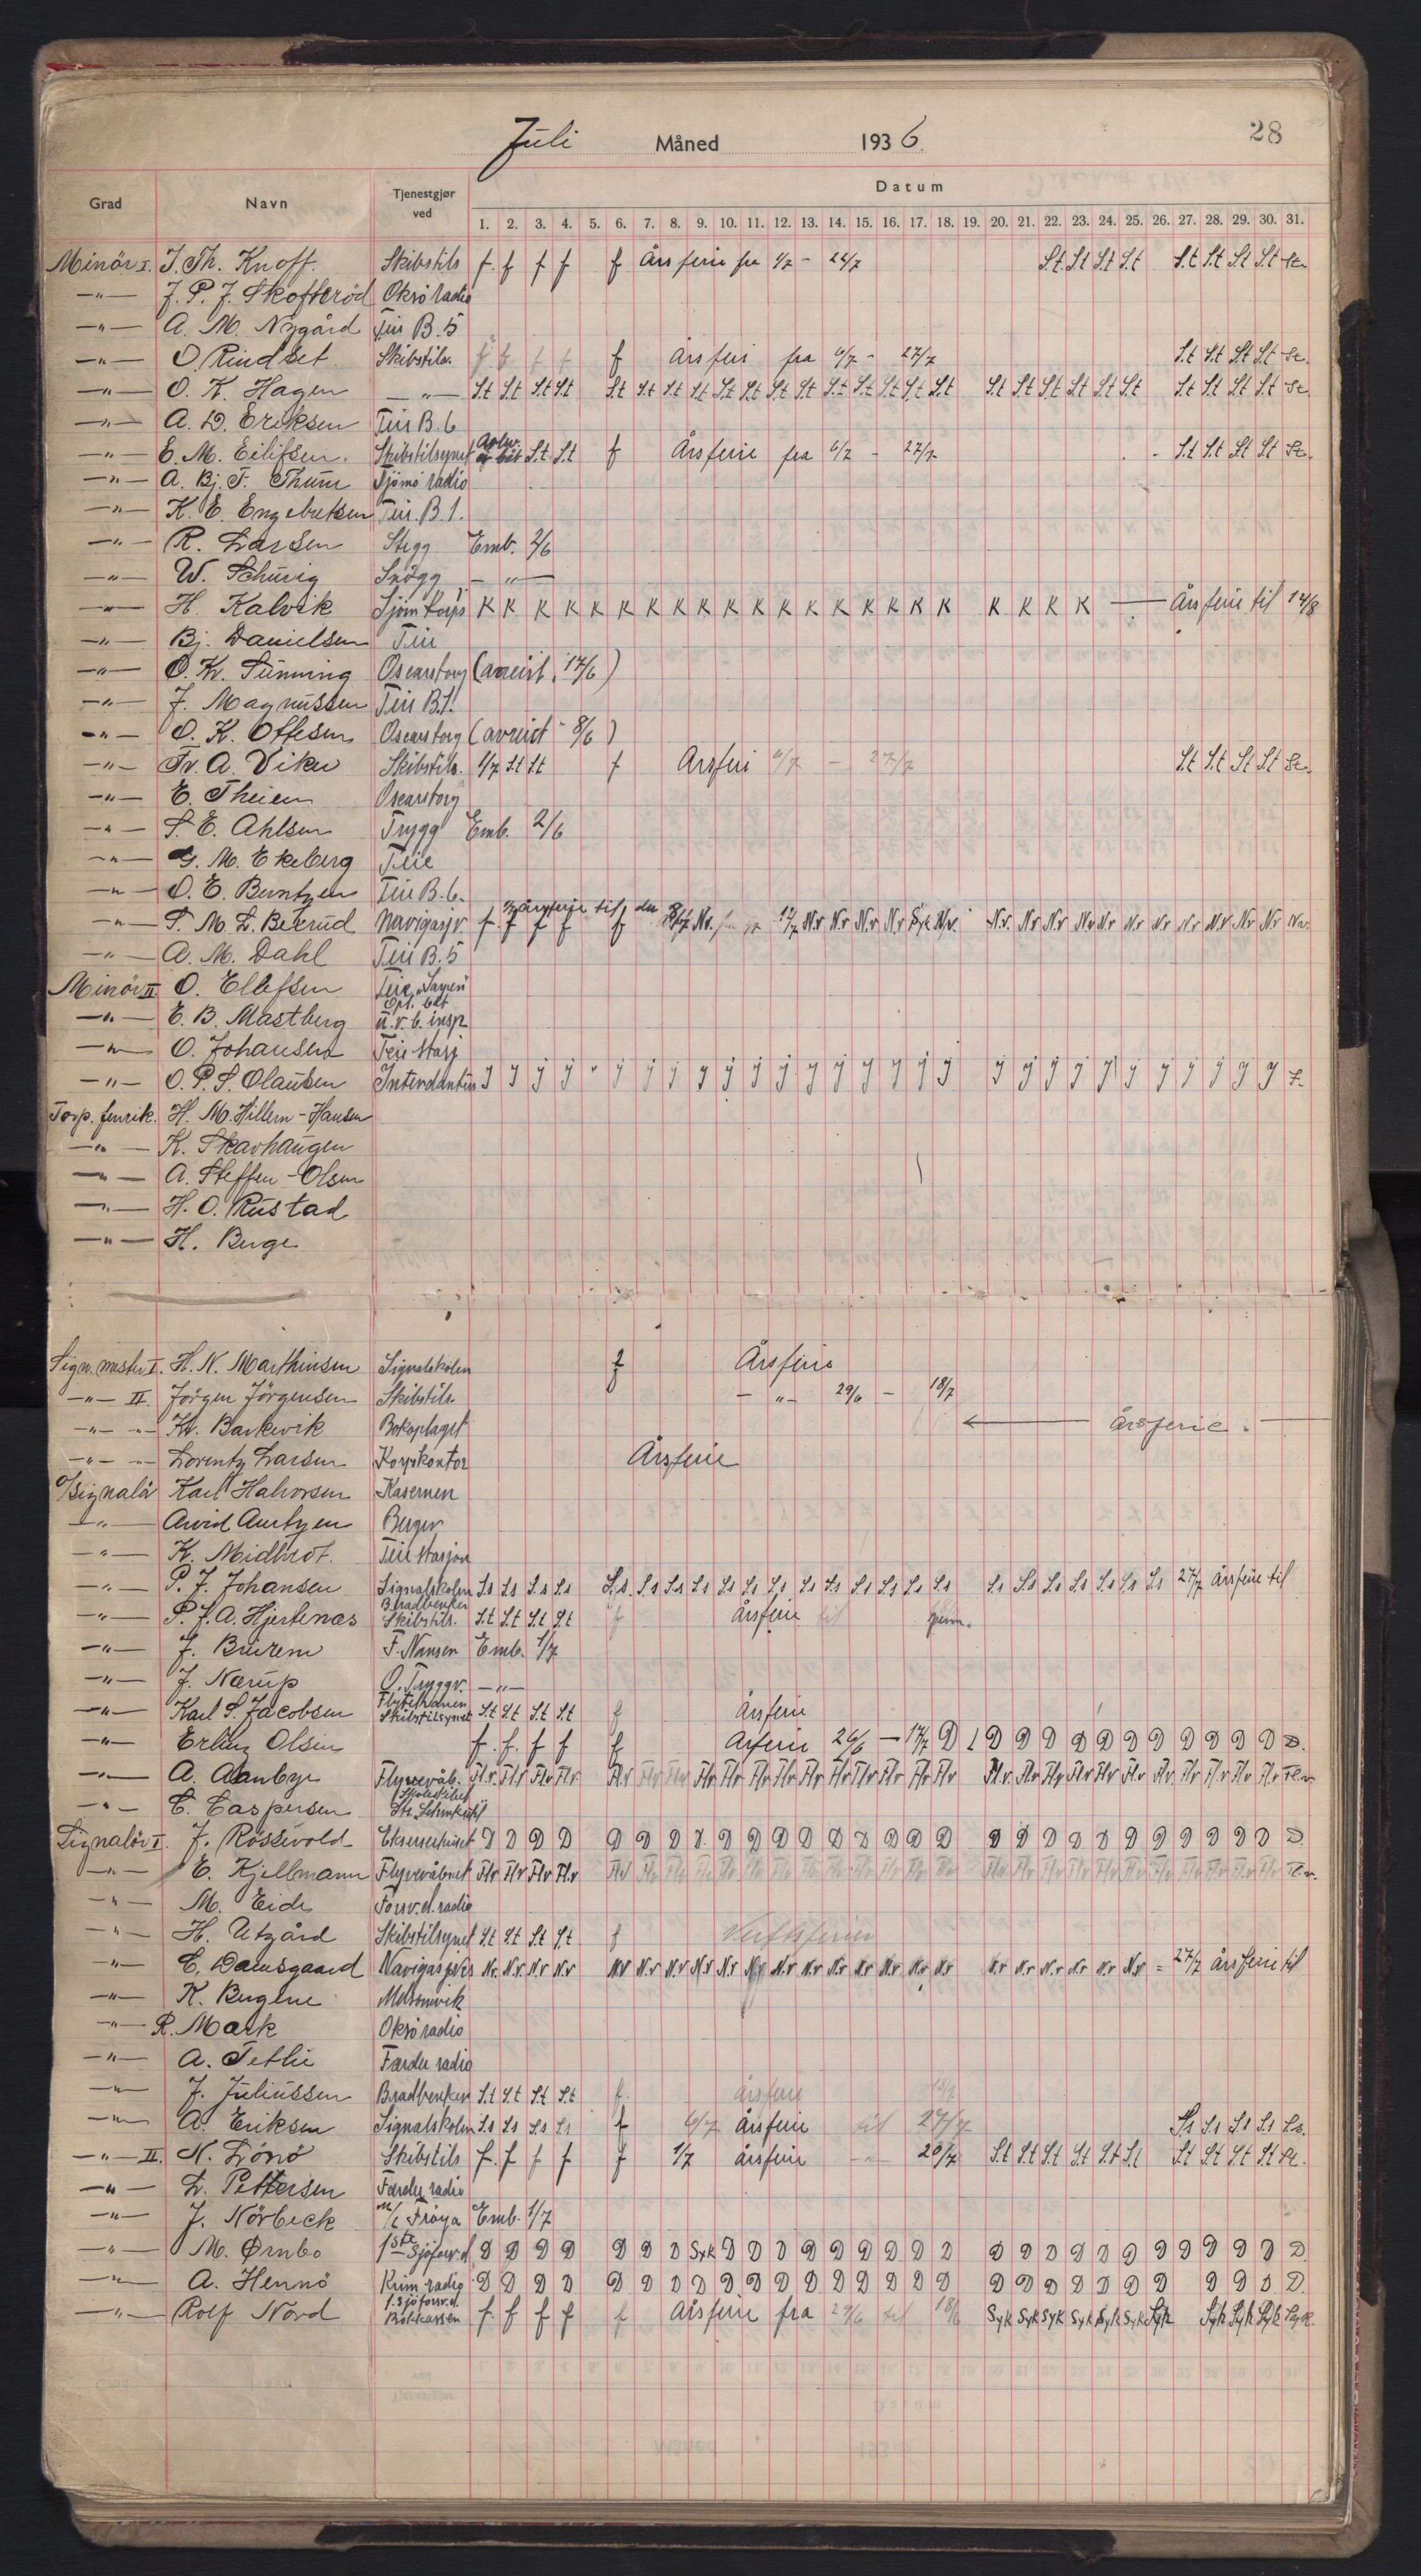 28
Juli Måned 1936.
Grad Navn Tjenestgjør ved Datum
1. 2. 3. 4. 5. 6. 7. 8. 9. 10. 11. 12. 13. 14. 15. 16. 17. 18. 19. 20. 21. 22. 23. 24. 25. 26. 27. 28. 29. 30. 31.
Minör I. J. Th. Knoff. Skibstils f. f f f f Årsferie fra 1/7 - 22/7 S.t S.t S.t S.t S.t S.t St S.t St.
-"- J. P. J. Skofteröd Oksö radio
-"- A. M. Nygård Teie B. 5
-"- O Rindset Skibstils. f f f f f årsferi fra 6/7 - 27/7 S.t S.t St St St.
-"- O. K. Hagen -"- S.t S.t S.t S.t S.t S.t S.t S.t S.t S.t S.t S.t S.t S.t S.t S.t S.t S.t S.t S.t S.t S.t S.t S.t S.t S.t S.t St.
-"- A. D. Eriksen Teie B. 6
-"- E. M. Eilifsen. Skibstilsynet S.t S.t f Årsferie fra 6/7 - 27/7 S.t S.t St St St.
-"- A. Bj. F. Thune Tjömö radio
-"- K. E. Engebretsen Teie. B. 1.
-"- R. Larsen Stegg Emb. 2/6
-"- W. Schürig Snögg -"-
-"- H. Kalvik Sjöm korps K K K K K K K K K K K K K K K K K K K K K K — Årsferie til 14/8
-"- Bj. Danielsen Teie
-"- O. Kr. Sünning Oscarsborg (avreist 17/6)
-"- J. Magnüssen Teie B. 1.
-"- O. K. Ottesen Oscarsborg (avreist 8/6)
-"- Fr. A. Viker Skibstils. 1/7 S.t S.t f Årsferi 6/7 - 27/7 S.t S.t St St St.
-"- E. Theien Oscarsborg
-"- S. E. Ahlsen Trygg Emb. 2/6
-"- G. M. Ekeberg Teie
-"- O. E. Berntzen Teie B. 6.
-"- S. M. L. Beerüd Navigasjv. f. f f f f årsferie til den N.v. 17/7 N.v N.v N.v N.v Syk N.v. N.v. N.v N.v N.v N.v N.v N.v N.v N.v N.v N.v Nv.
-"- A. M. Dahl Teie B. 5
Minör II O. Ellefsen Teie
-"- E. B. Mastberg u. v. b. insp
-"- O. Johansen Teie stasj
-"- O. P. S. Olaüsen Intendantür J J j j " j j j j j j j j j j j j J j j j j j j j j j j j J.
Torp. fenrik. H. M. Hillern-Hansen
-"- K. Skavhaugen
-"- A. Steffen-Olsen
-"- H. O. Rüstad
-"- H. Berge
Sign. mester I. H. N. Marthinsen Signalskolen f Årsferie
-"- II. Jörgen Jörgensen Skibstils. -"- 29/6 - 18/7
-"- -"- Kr. Barkevik Bokoplaget ← årsferie. —
-"- -"- Lorentz Larsen Korpskontor Årsferie
O/signalör Karl Halvorsen Kasernen
-"- Arvid Aurtzen Berger
-"- K. Midbröt. Teie stasjon
-"- P. J. Johansen Signalskolen S.s S.s S.s S.s S.s. S.s S.s S.s S.s S.s S.s S.s S.s S.s S.s S.s S.s S.s S.s S.s S.s S.s S.s S.s 27/7 årsferie til
-"- P. J. A. Hjertenæs Bradbenken Skibstils. S.t S.t S.t S.t f årsferie til
-"- J. Bürem F. Nansen Emb. 1/7
-"- J. Nærüp O. Tryggv. -"-
-"- Karl S. Jacobsen Skibstilsynet S.t S.t S.t S.t f årsferie
-"- Erling Olsen f. f. f f f Årferie 26/6 — 17/7 D 1 D D D D D D D D D D D D.
-"- A. Aanbye Flyvevåb. Fl.v Fl.v Fl.v Fl.v Fl.v Flv Flv Flv Flv Flv Flv Flv Flv Flv Flv Flv Flv Fl.v Flv Flv Flv Flv Fl.v Flv Flv Flv Flv Fl.v Fl.v.
-"- C. Caspersen
Signalör I. J. Rössevold Ekserserhuset D D D D D D D D D D D D D D D D D D D D D D D D D D D D D.
-"- E. Kjellmann Flyvevåbnet Flv Flv Flv Fl.v Flv Flv Flv Flv Flv Flv Flv Flv Flv Flv Flv Flv Flv Flv Flv Flv Flv Flv Flv Flv Flv Flv Flv Flv Fl.v.
-"- M. Eide Forsv. d. radio
-"- H. Utgård Skibstilsynet S.t S.t S.t S.t f Verftsferien
-"- C. Damsgaard Navigasjvs N.v. N.v N.v N.v N.v N.v N.v N.v N.v N.v N.v N.v N.v N.v N.v N.v N.v N.v N.v N.v N.v N.v N.v = 27/7 årsferie til
-"- K. Bergene Marvik
-"- R. Mark Oksö radio
-"- A. Tetlie Færder radio
-"- J. Juliüssen Bradbenken S.t S.t S.t S.t f. årsferie 18/7
-"- A. Eriksen Signalskolen S.s S.s S.s S.s f 6/7 årsferie til 27/7 S.s S.s S.s S.s S.s.
-"- II. N. Lönö Skibstils f. f f f f 1/7 årsferie -"- 20/7 S.t S.t S.t S.t S.t S.t S.t S.t S.t S.t St.
-"- L. Pettersen Færder radio
-"- J. Nörbeck m/l Fröya Emb. 1/7
-"- M. Ørnbo 1ste Sjöforsv.d. D D D D D D D Syk D D D D D D D D D D D D D D D D D D D D D.
-"- A. Hennö Krim radio D D D D D D D D D D D D D D D D D D D D D D D D D D D D.
-"- Rolf Nord 1. Sjöforsv.d. f. f f f f Årsferie fra 29/6 til 18/ Syk Syk Syk Syk Syk Syk Syk Syk Syk Syk Syk.